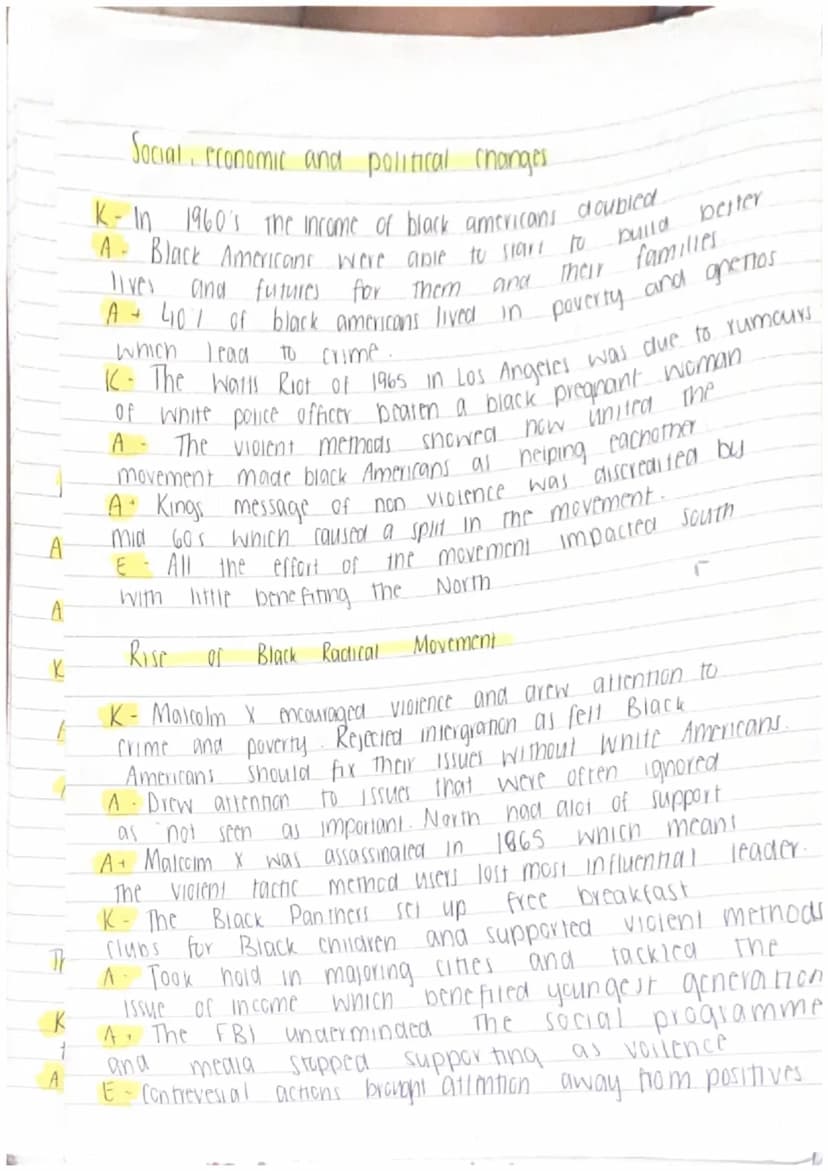 Social, economic and political changes
K - In 1960's the income of black americans doubled
A - Black Americans were able to start to build better
lives and futures for them and their families
A + 40% of black americans lived in poverty and ghettos
which lead to crime.
K - The Watts Riot of 1965 in Los Angeles was due to rumours
of white police officer beaten a black pregnant woman
A - The violent methods showed how united the
movement made black Americans as helping eachother
A + Kings message of non violence was discredited by
mid 60s which caused a split in the movement.
E - All the effort of the movement impacted south
with little benefiting the North
Rise of Black Radical Movement
K - Malcolm X encouraged violence and drew attention to
crime and poverty. Rejected intergration as felt Black
Americans should fix their issues without White Americans.
A - Drew attention to issues that were often ignored
as not seen as important. North had alot of support
A + Malcolm X was assassinated in 1865 which meant
the violent tactic method users lost most influential leader.
K - The Black Panthers set up free breakfast
clubs for Black children and supported violent methods
A - Took hold in majoring cities and tackled the
issue of income which benefited youngest generation
A + The FBI underminded the social programme
and media stopped supporting as voilence
E - Contrevesial actions brought attention away from positives
A
A
K
Th
K
A